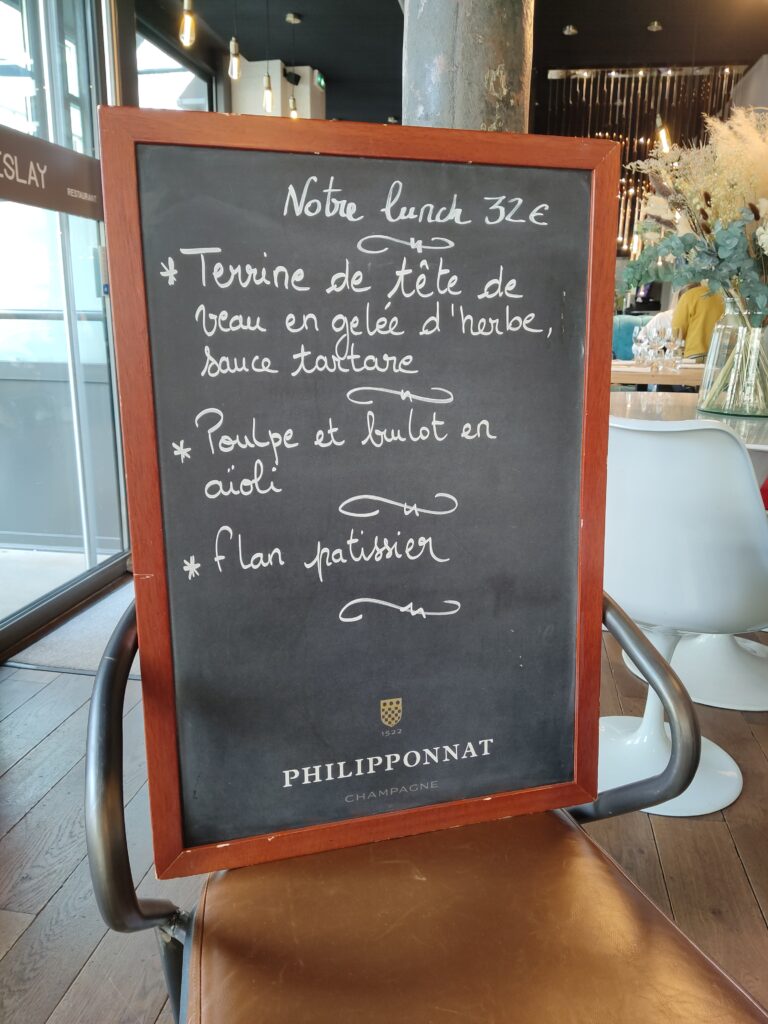 ESLAY
RESTAURANT
Notre lunch 32€
* Terrine de tête de
veau en gelée d'herbe,
sauce tartare
* Poulpe et bulot en
aïoli
* flan patissier
1522
PHILIPPONNAT
CHAMPAGNE